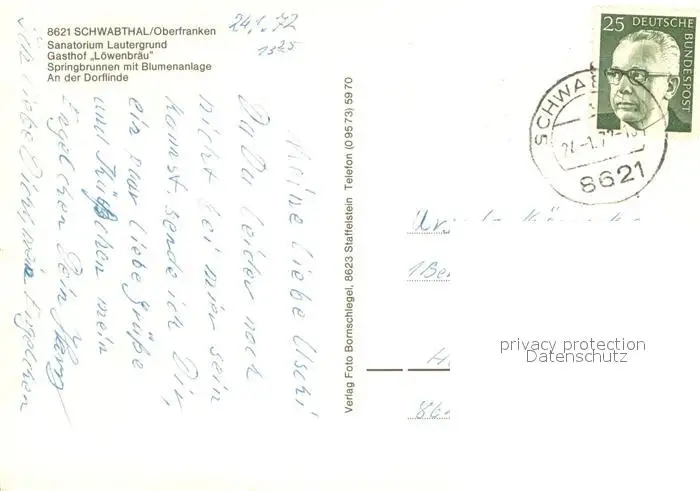 8621 SCHWABTHAL/Oberfranken
Sanatorium Lautergrund
Gasthof „Löwenbräu"
Springbrunnen mit Blumenanlage
An der Dorflinde
24.1.72
13 25
Meine liebe Uschi
Da Du leider noch
nicht bei mir sein
kannst, sende ich Dir,
ein paar liebe Grüße
und Küßchen mein
Engelchen Dein
ich liebe Dich mein Engelchen
Verlag Foto Bornschlegel, 8623 Staffelstein Telefon (0 95 73) 59 70
25 DEUTSCHE BUNDESPOST
8621
privacy protection
Datenschutz